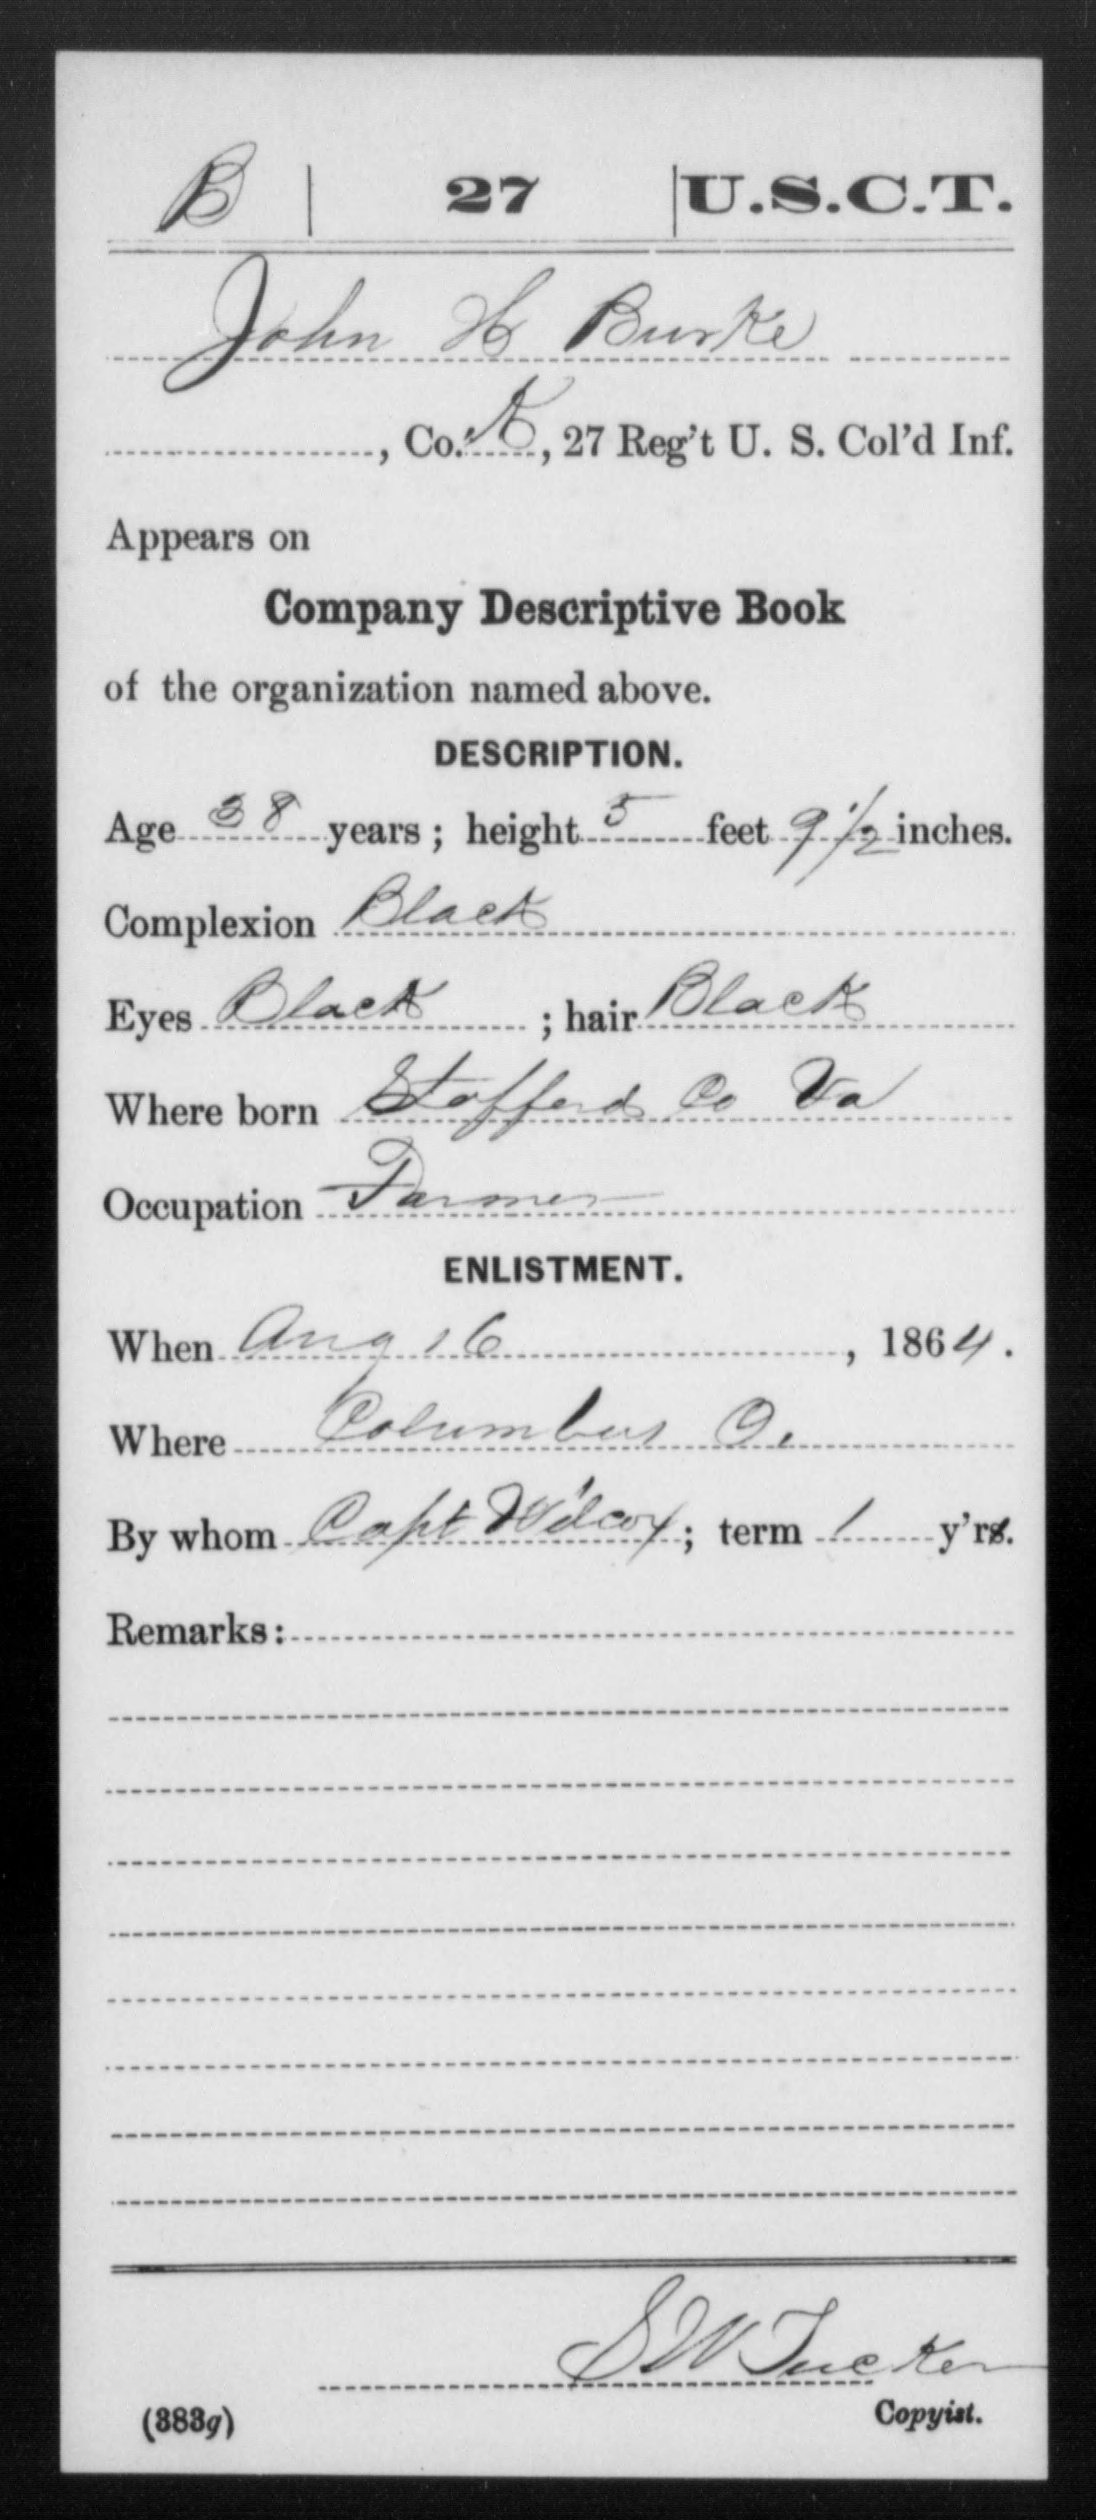 B | 27 | U.S.C.T.
John H Burke
, Co. K, 27 Reg't U. S. Col'd Inf.
Appears on
Company Descriptive Book
of the organization named above.
DESCRIPTION.
Age 38 years; height 5 feet 9 1/2 inches.
Complexion Black
Eyes Black ; hair Black
Where born Stafford Co Va
Occupation Farmer
ENLISTMENT.
When Aug 16, 1864.
Where Columbus O.
By whom Capt Wilcox; term 1 y'rs.
Remarks:
S W Tucker
(383g) Copyist.